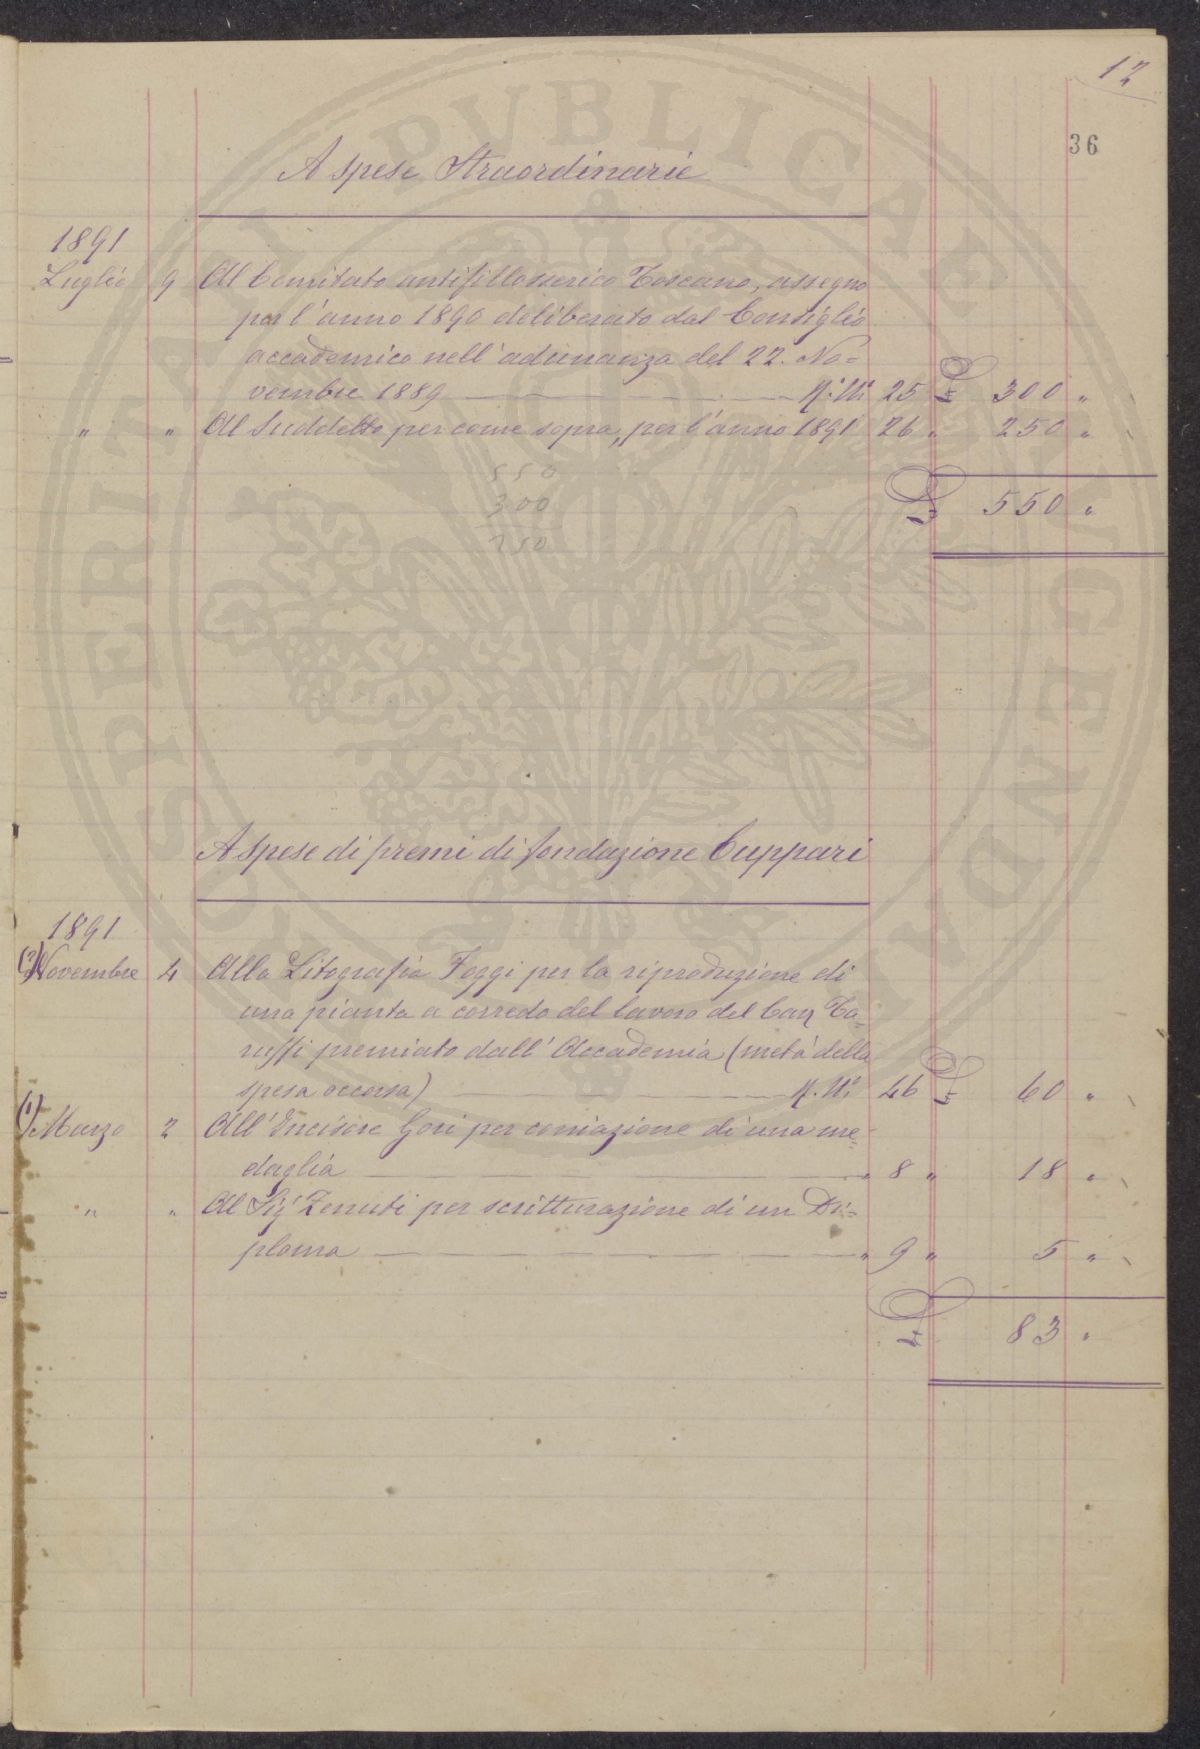 12
36
A Spese Straordinarie
1891
Luglio 9 Al Comitato antifillosserico Toscano, assegno
per l'anno 1890 deliberato dal Consiglio
accademico nell'adunanza del 22. No=
vembre 1889 25 £ 300 "
" " Al Suddetto per come sopra, per l'anno 1891 26 " 250 "
550
300
250
£ 550 "
A Spese di premi di fondazione Cuppari
1891
(2) Novembre 4 Alla Litografia Foggi per la riproduzione di
una pianta a corredo del lavoro del Cav Ta=
ruffi premiato dall'Accademia (metà della
spesa occorsa) 46 £ 60 "
(1) Marzo 2 All'Incisore Gori per coniazione di una me=
daglia " 8 " 18 "
" " Al Sig Zenuti per scritturazione di un Di=
ploma " 9 " 5 "
£ 83 "
PROSPERITATI PVBLICAE AVGENDAE